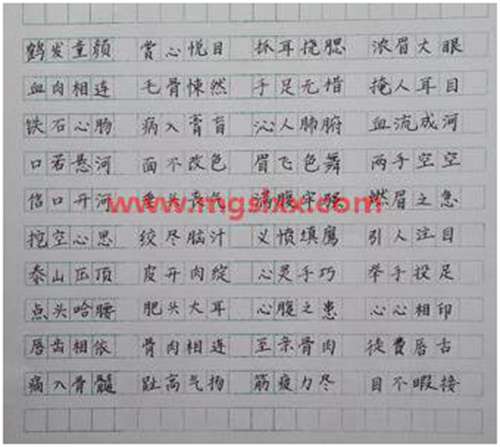 鹤发童颜 赏心悦目 抓耳挠腮 浓眉大眼
血肉相连 毛骨悚然 手足无措 掩人耳目
铁石心肠 病入膏肓 沁人肺腑 血流成河
口若悬河 面不改色 眉飞色舞 两手空空
信口开河 垂头丧气 满腹牢骚 燃眉之急
www.mgslxx.com
挖空心思 绞尽脑汁 义愤填鹰 引人注目
泰山压顶 皮开肉绽 心灵手巧 举手投足
点头哈腰 肥头大耳 心腹之患 心心相印
唇齿相依 骨肉相连 至亲骨肉 徒费唇舌
痛入骨髓 趾高气扬 筋疲力尽 目不暇接